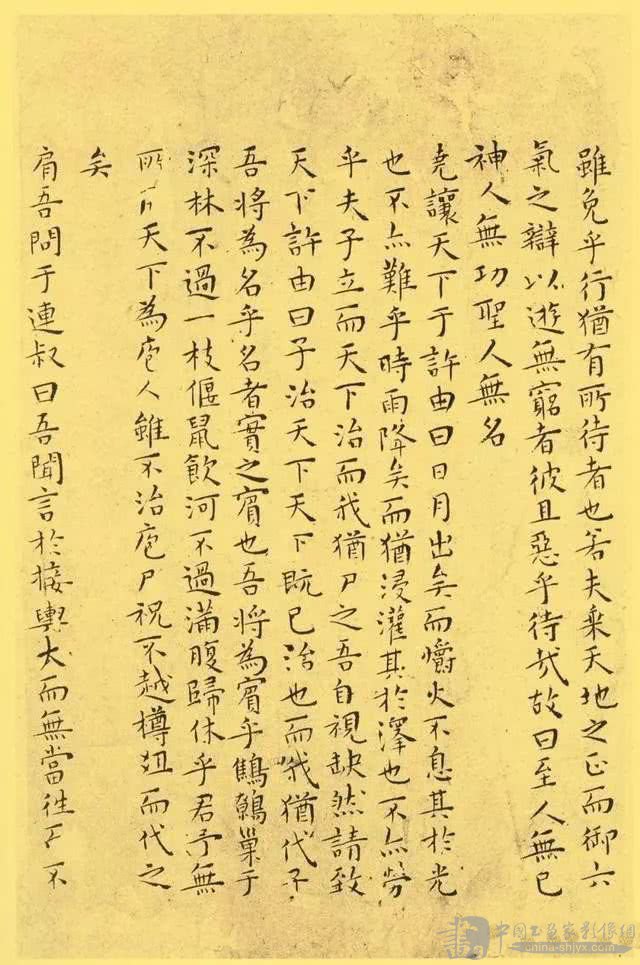 雖免乎行猶有所待者也若夫乘天地之正而御六
氣之辯以遊無窮者彼且惡乎待哉故曰至人無己
神人無功聖人無名
堯讓天下于許由曰日月出矣而爝火不息其於光
也不亦難乎時雨降矣而猶浸灌其於澤也不亦勞
乎夫子立而天下治而我猶尸之吾自視缺然請致
天下許由曰子治天下天下既已治也而我猶代子
吾將為名乎名者實之賓也吾將為賓乎鷦鷯巢于
深林不過一枝偃鼠飲河不過滿腹歸休乎君予無
所用天下為庖人雖不治庖尸祝不越樽俎而代之
矣
肩吾問于連叔曰吾聞言於接輿大而無當往而不
中国书画家影像網
china-shjyx.com